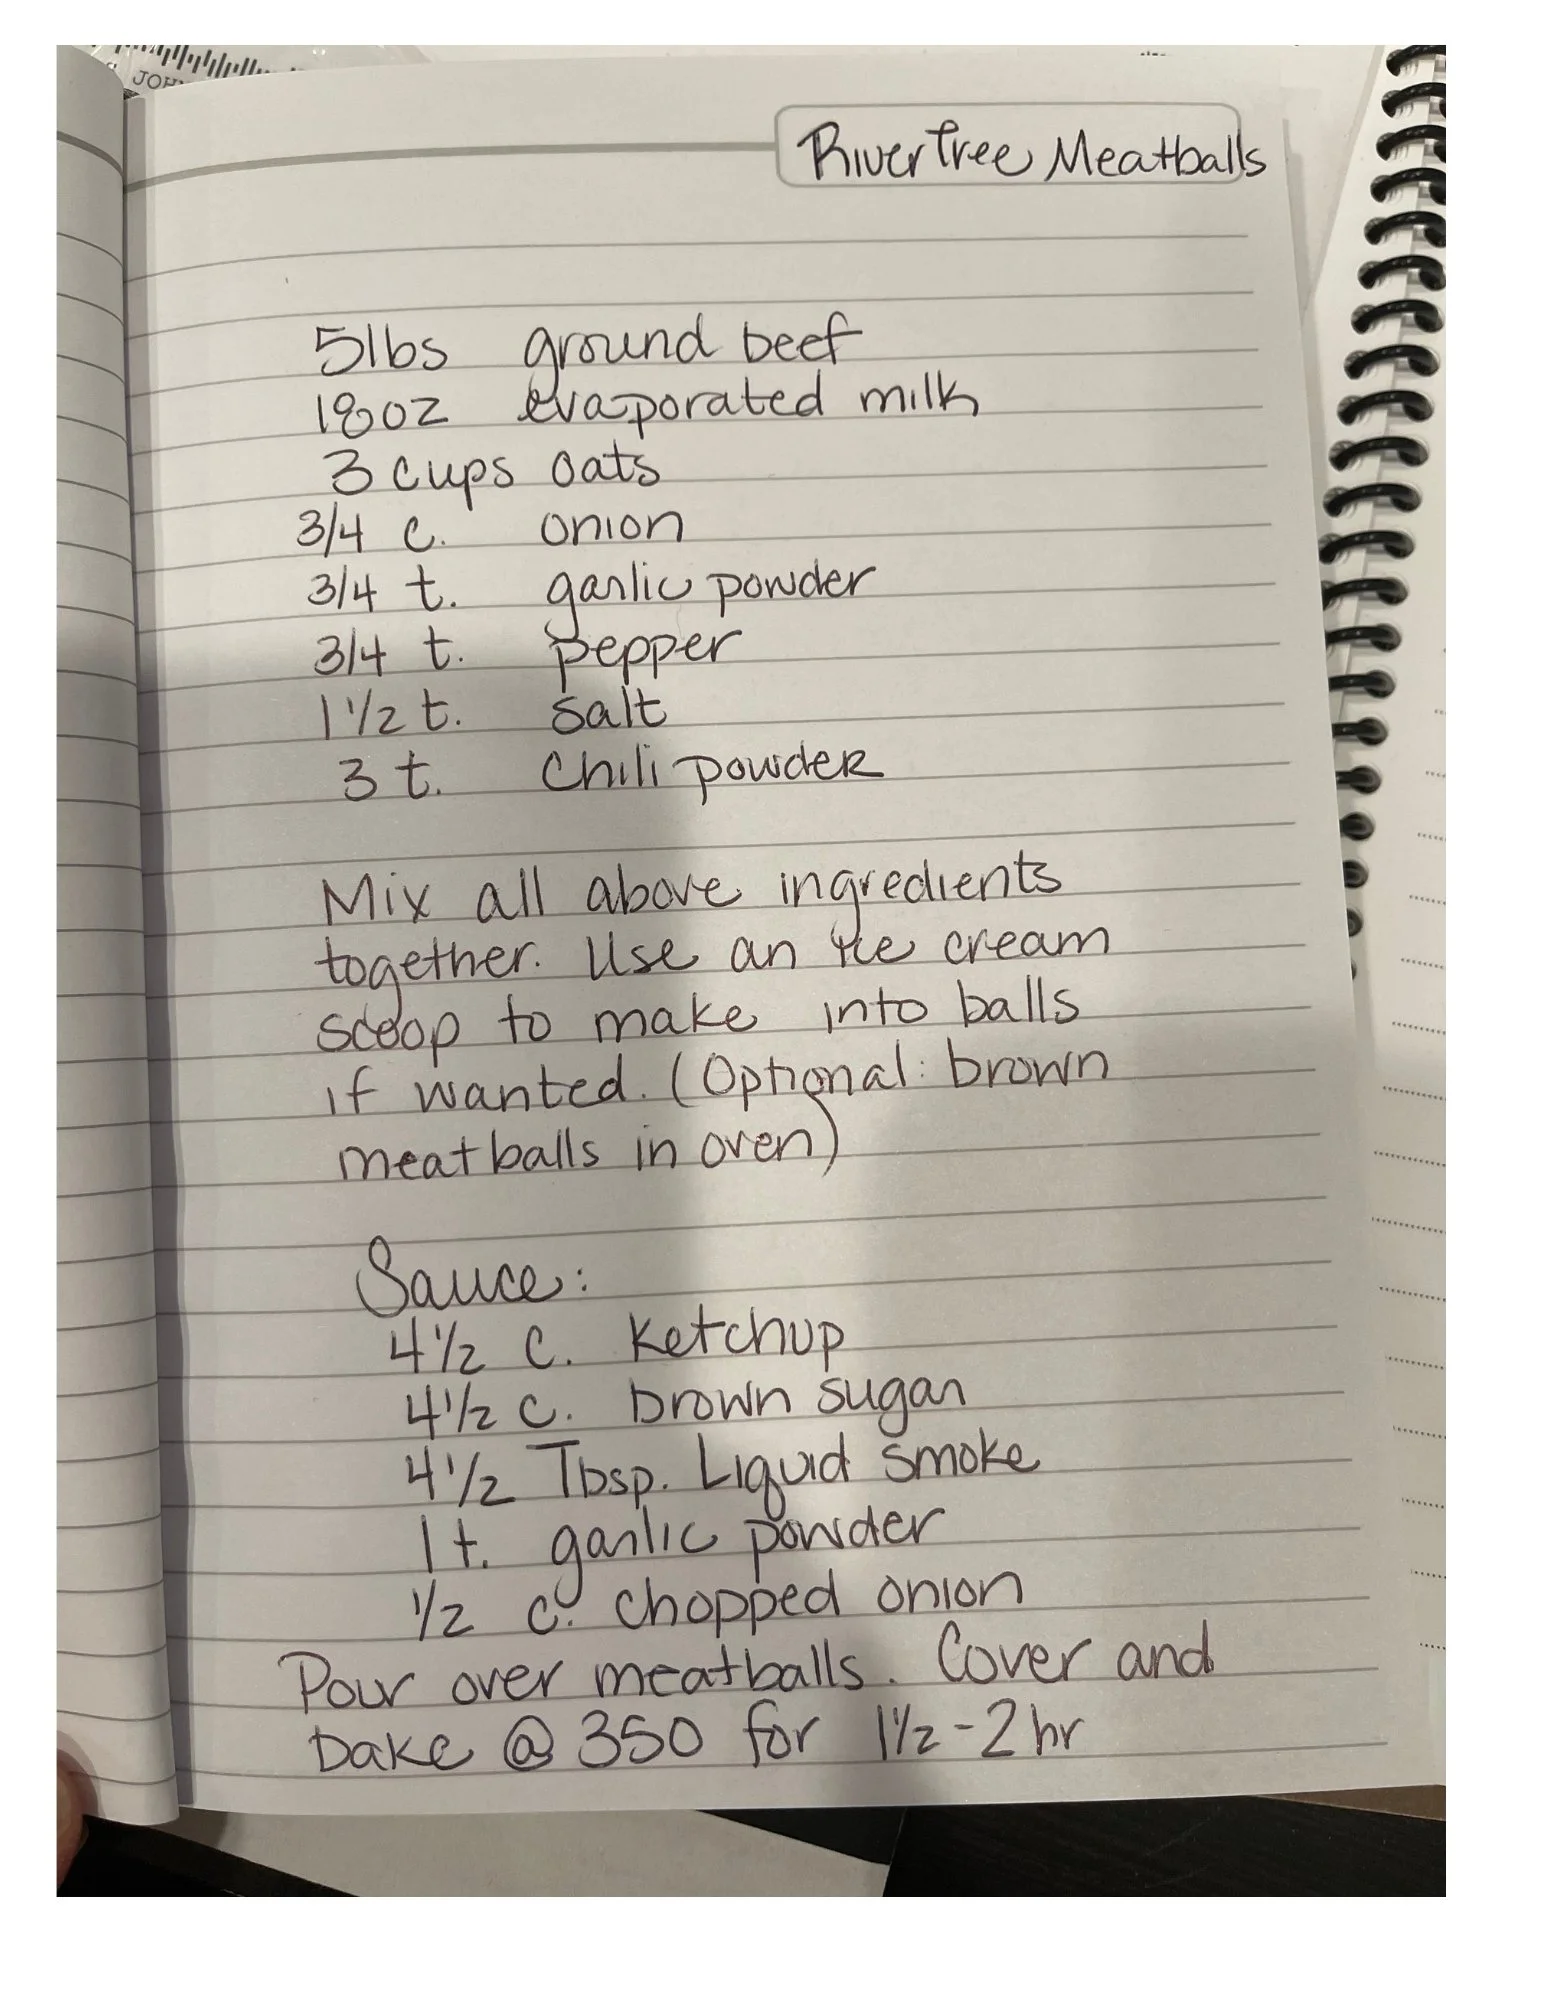 JOH
RiverTree Meatballs
5lbs ground beef
18oz evaporated milk
3 cups oats
3/4 c. onion
3/4 t. garlic powder
3/4 t. pepper
1 1/2 t. salt
3 t. Chili powder
Mix all above ingredients
together. Use an ice cream
scoop to make into balls
if wanted. (Optional: brown
meatballs in oven)
Sauce:
4 1/2 C. Ketchup
4 1/2 C. brown sugar
4 1/2 Tbsp. Liquid smoke
1 t. garlic powder
1/2 c. chopped onion
Pour over meatballs. Cover and
bake @ 350 for 1 1/2 - 2 hr